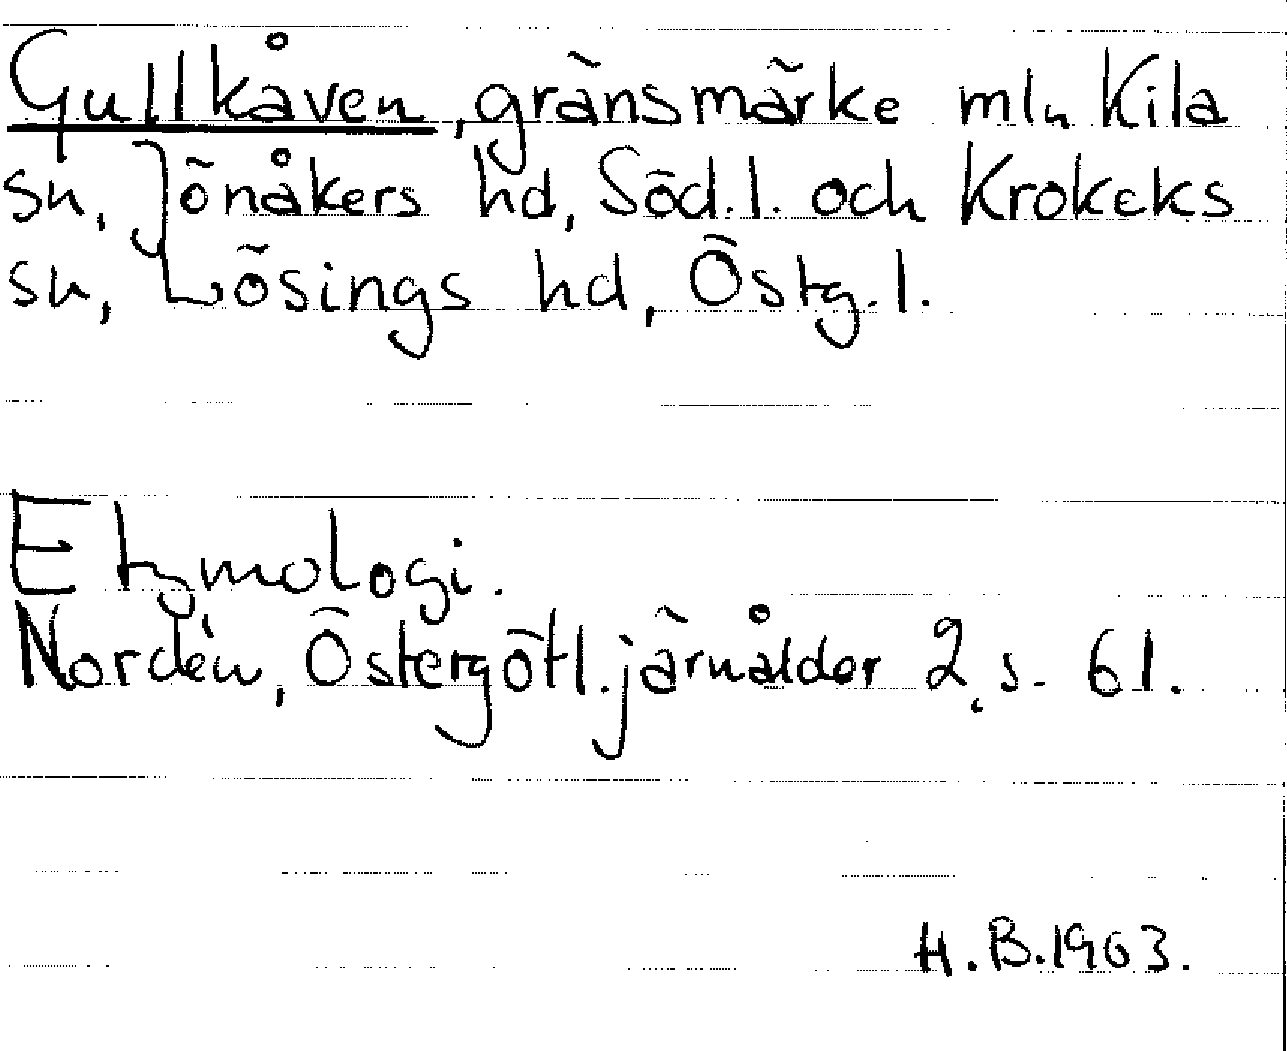 Gullkåven, gränsmärke mln Kila
sn, Jönåkers hd, Söd.l. och Krokeks
sn, Lösings hd, Östg.l.
Etymologi.
Nordén, Östergötl. järnålder 2, s. 61.
H.B. 1963.